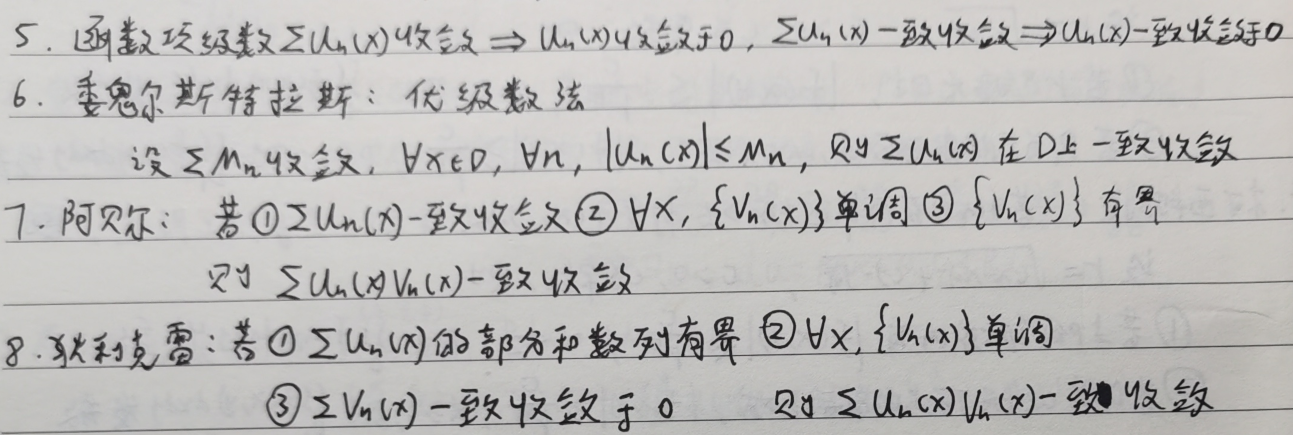 5. 函数项级数∑Un(x)收敛 ⇒ Un(x)收敛于0, ∑Un(x)一致收敛⇒Un(x)一致收敛于0
6. 委魏尔斯特拉斯: 优级数法
设∑Mn收敛, ∀x∈D, ∀n, |Un(x)|≤Mn, 则∑Un(x)在D上一致收敛
7. 阿贝尔: 若①∑Un(x)一致收敛②∀x, {Vn(x)}单调③{Vn(x)}有界
则 ∑Un(x)Vn(x)一致收敛
8. 狄利克雷: 若①∑Un(x)的部分和数列有界 ②∀x, {Vn(x)}单调
③∑Vn(x)一致收敛于0 则∑Un(x)Vn(x)一致收敛